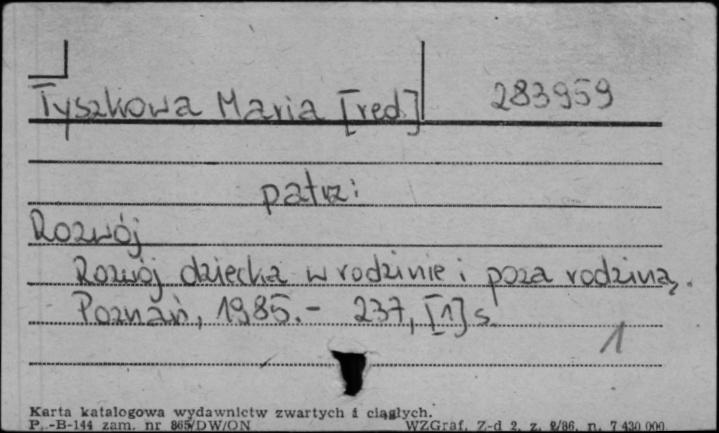 Tyszkowa Maria [red.] 283959
patrz:
Rozwój
Rozwój dziecka w rodzinie i poza rodziną.
Poznań, 1985.- 237, [1] s.
1
Karta katalogowa wydawnictw zwartych i ciągłych.
P.-B-144 zam. nr 865/DW/ON WZGraf. Z-d 2, z. 2/86, n. 7 430 000.